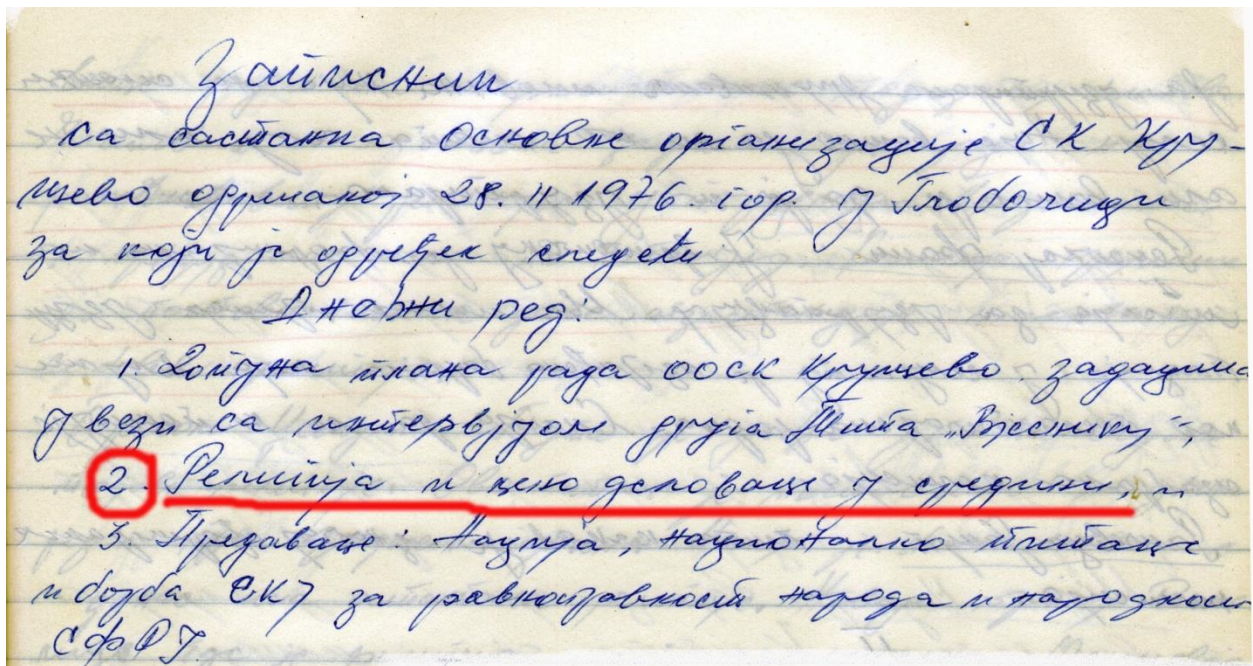 Записник
са састанка Основне организације СК Кру-
шево одржаног 28. II 1976. год. у Глобочици
за који је одређен следећи
Дневни ред:
1. Допуна плана рада ООСК Крушево задацима
у вези са интервјуом друга Тита „Вјеснику",
2. Религија и њено деловање у средини, и
3. Предавање: Нација, национално питање
и борба СКЈ за равноправност народа и народности
СФРЈ.